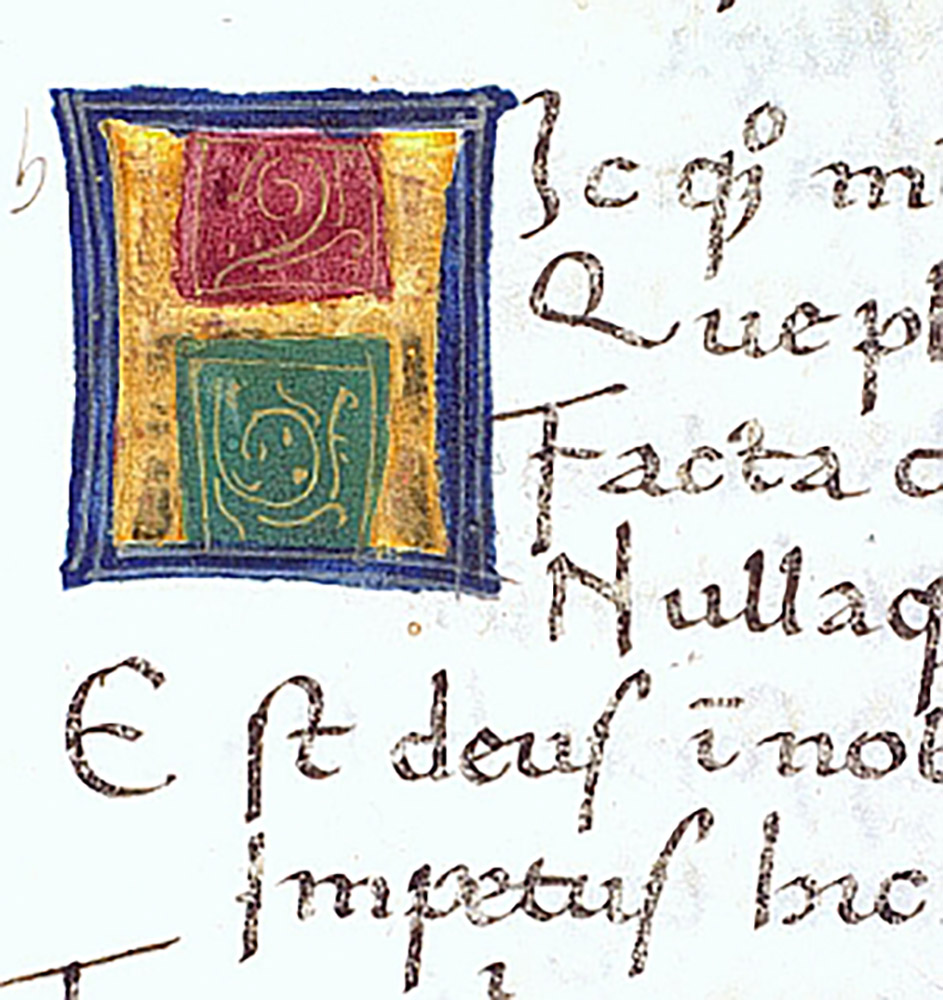 h
HIc qͦ m
Que pl
Facta c
Nullaq
Est deus ī nob
Impetus hinc
T